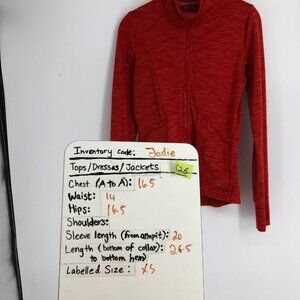 Inventory code: Jadie
Tops/Dresses/Jackets
Chest (A to A): 16.5
Waist: 14
Hips: 16.5
Shoulders:
Sleeve length (from armpit): 20
Length (bottom of collar) : 26.5
to bottom hem)
Labelled Size: XS